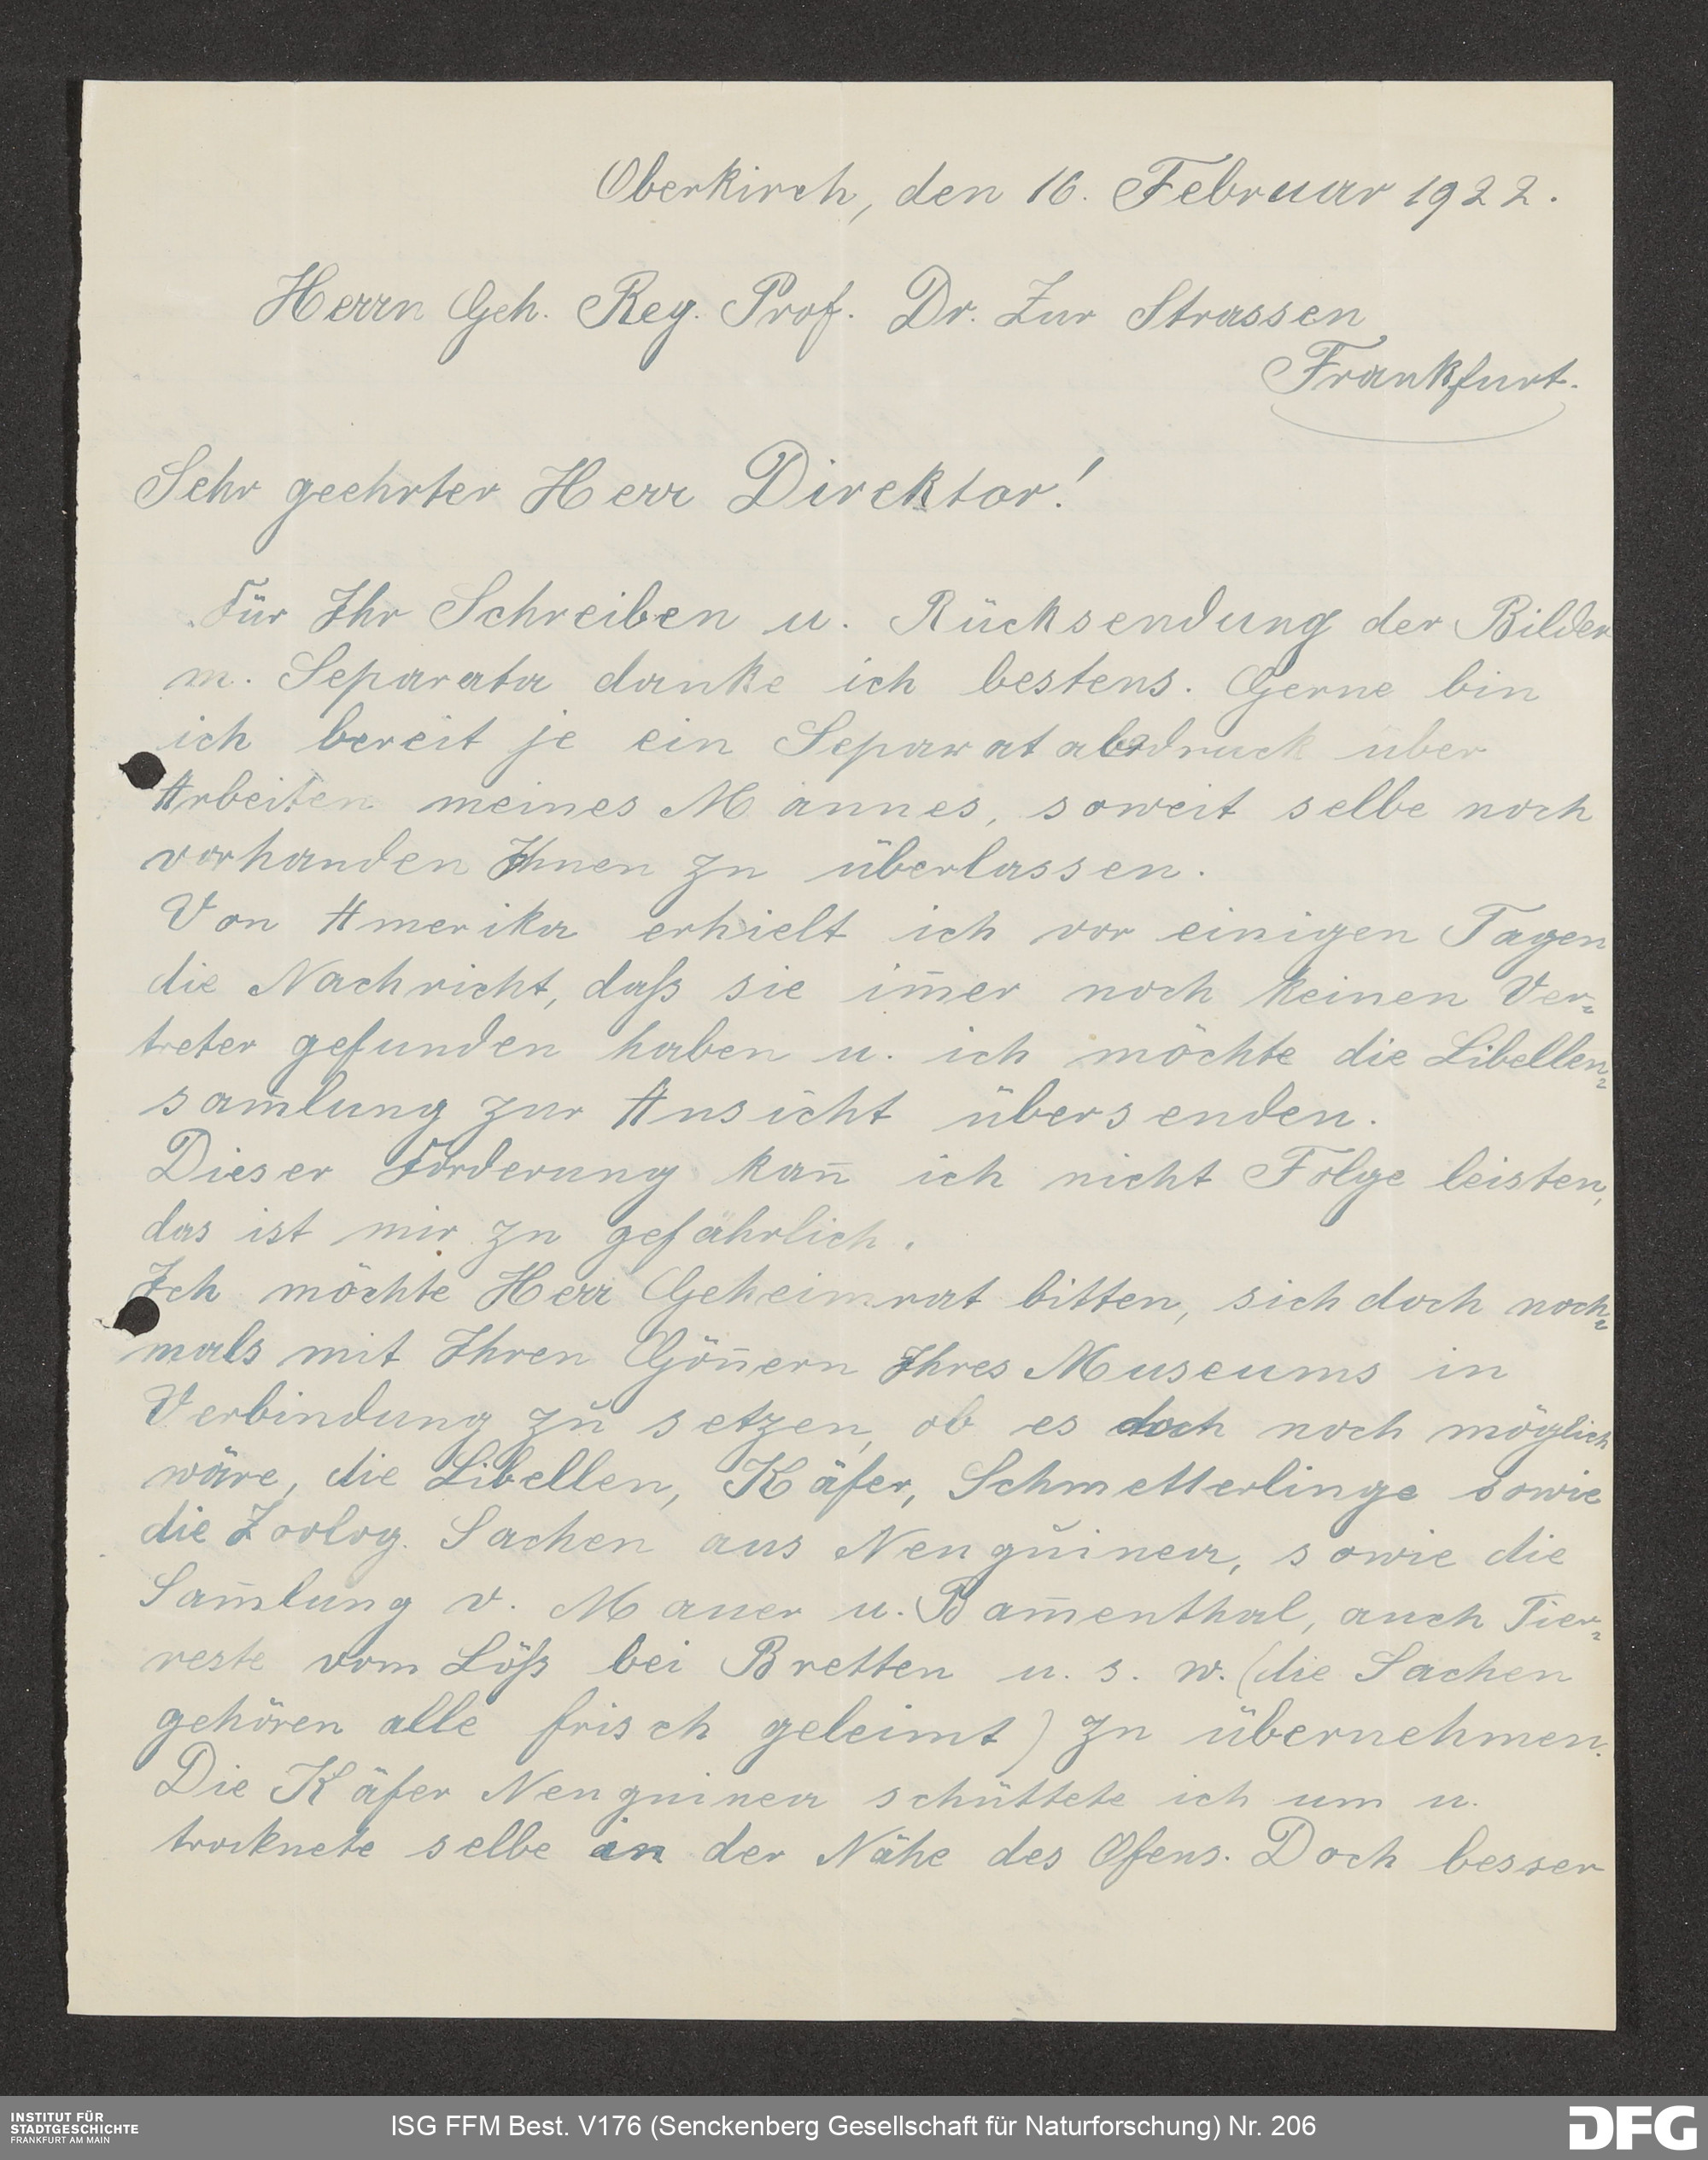 Oberkirch, den 16. Februar 1922.
Herrn Geh. Reg. Prof. Dr. Zur Strassen
Frankfurt.
Sehr geehrter Herr Direktor!
Für Ihr Schreiben u. Rücksendung der Bilder
m. Separata danke ich bestens. Gerne bin
ich bereit je ein Separatabdruck über
Arbeiten meines Mannes, soweit selbe noch
vorhanden Ihnen zu überlassen.
Von Amerika erhielt ich vor einigen Tagen
die Nachricht, daß sie im̄er noch keinen Ver=
treter gefunden haben u. ich möchte die Libellen=
sam̄lung zur Ansicht übersenden.
Dieser Forderung kan̄ ich nicht Folge leisten,
das ist mir zu gefährlich.
Ich möchte Herr Geheimrat bitten, sich doch noch=
mals mit Ihren Gön̄ern Ihres Museums in
Verbindung zu setzen, ob es doch noch möglich
wäre, die Libellen, Käfer, Schmetterlinge sowie
die Zoolog. Sachen aus Neuguinea, sowie die
Sam̄lung v. Mauer u. Bam̄enthal, auch Tier=
reste vom Löß bei Bretten u. s. w. (die Sachen
gehören alle frisch geleimt) zu übernehmen.
Die Käfer Neuguinea schüttete ich um u.
trocknete selbe in der Nähe des Ofens. Doch besser
INSTITUT FÜR
STADTGESCHICHTE
FRANKFURT AM MAIN
ISG FFM Best. V176 (Senckenberg Gesellschaft für Naturforschung) Nr. 206
DFG